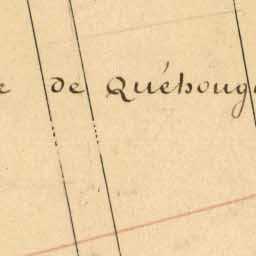 e de Quéhoug